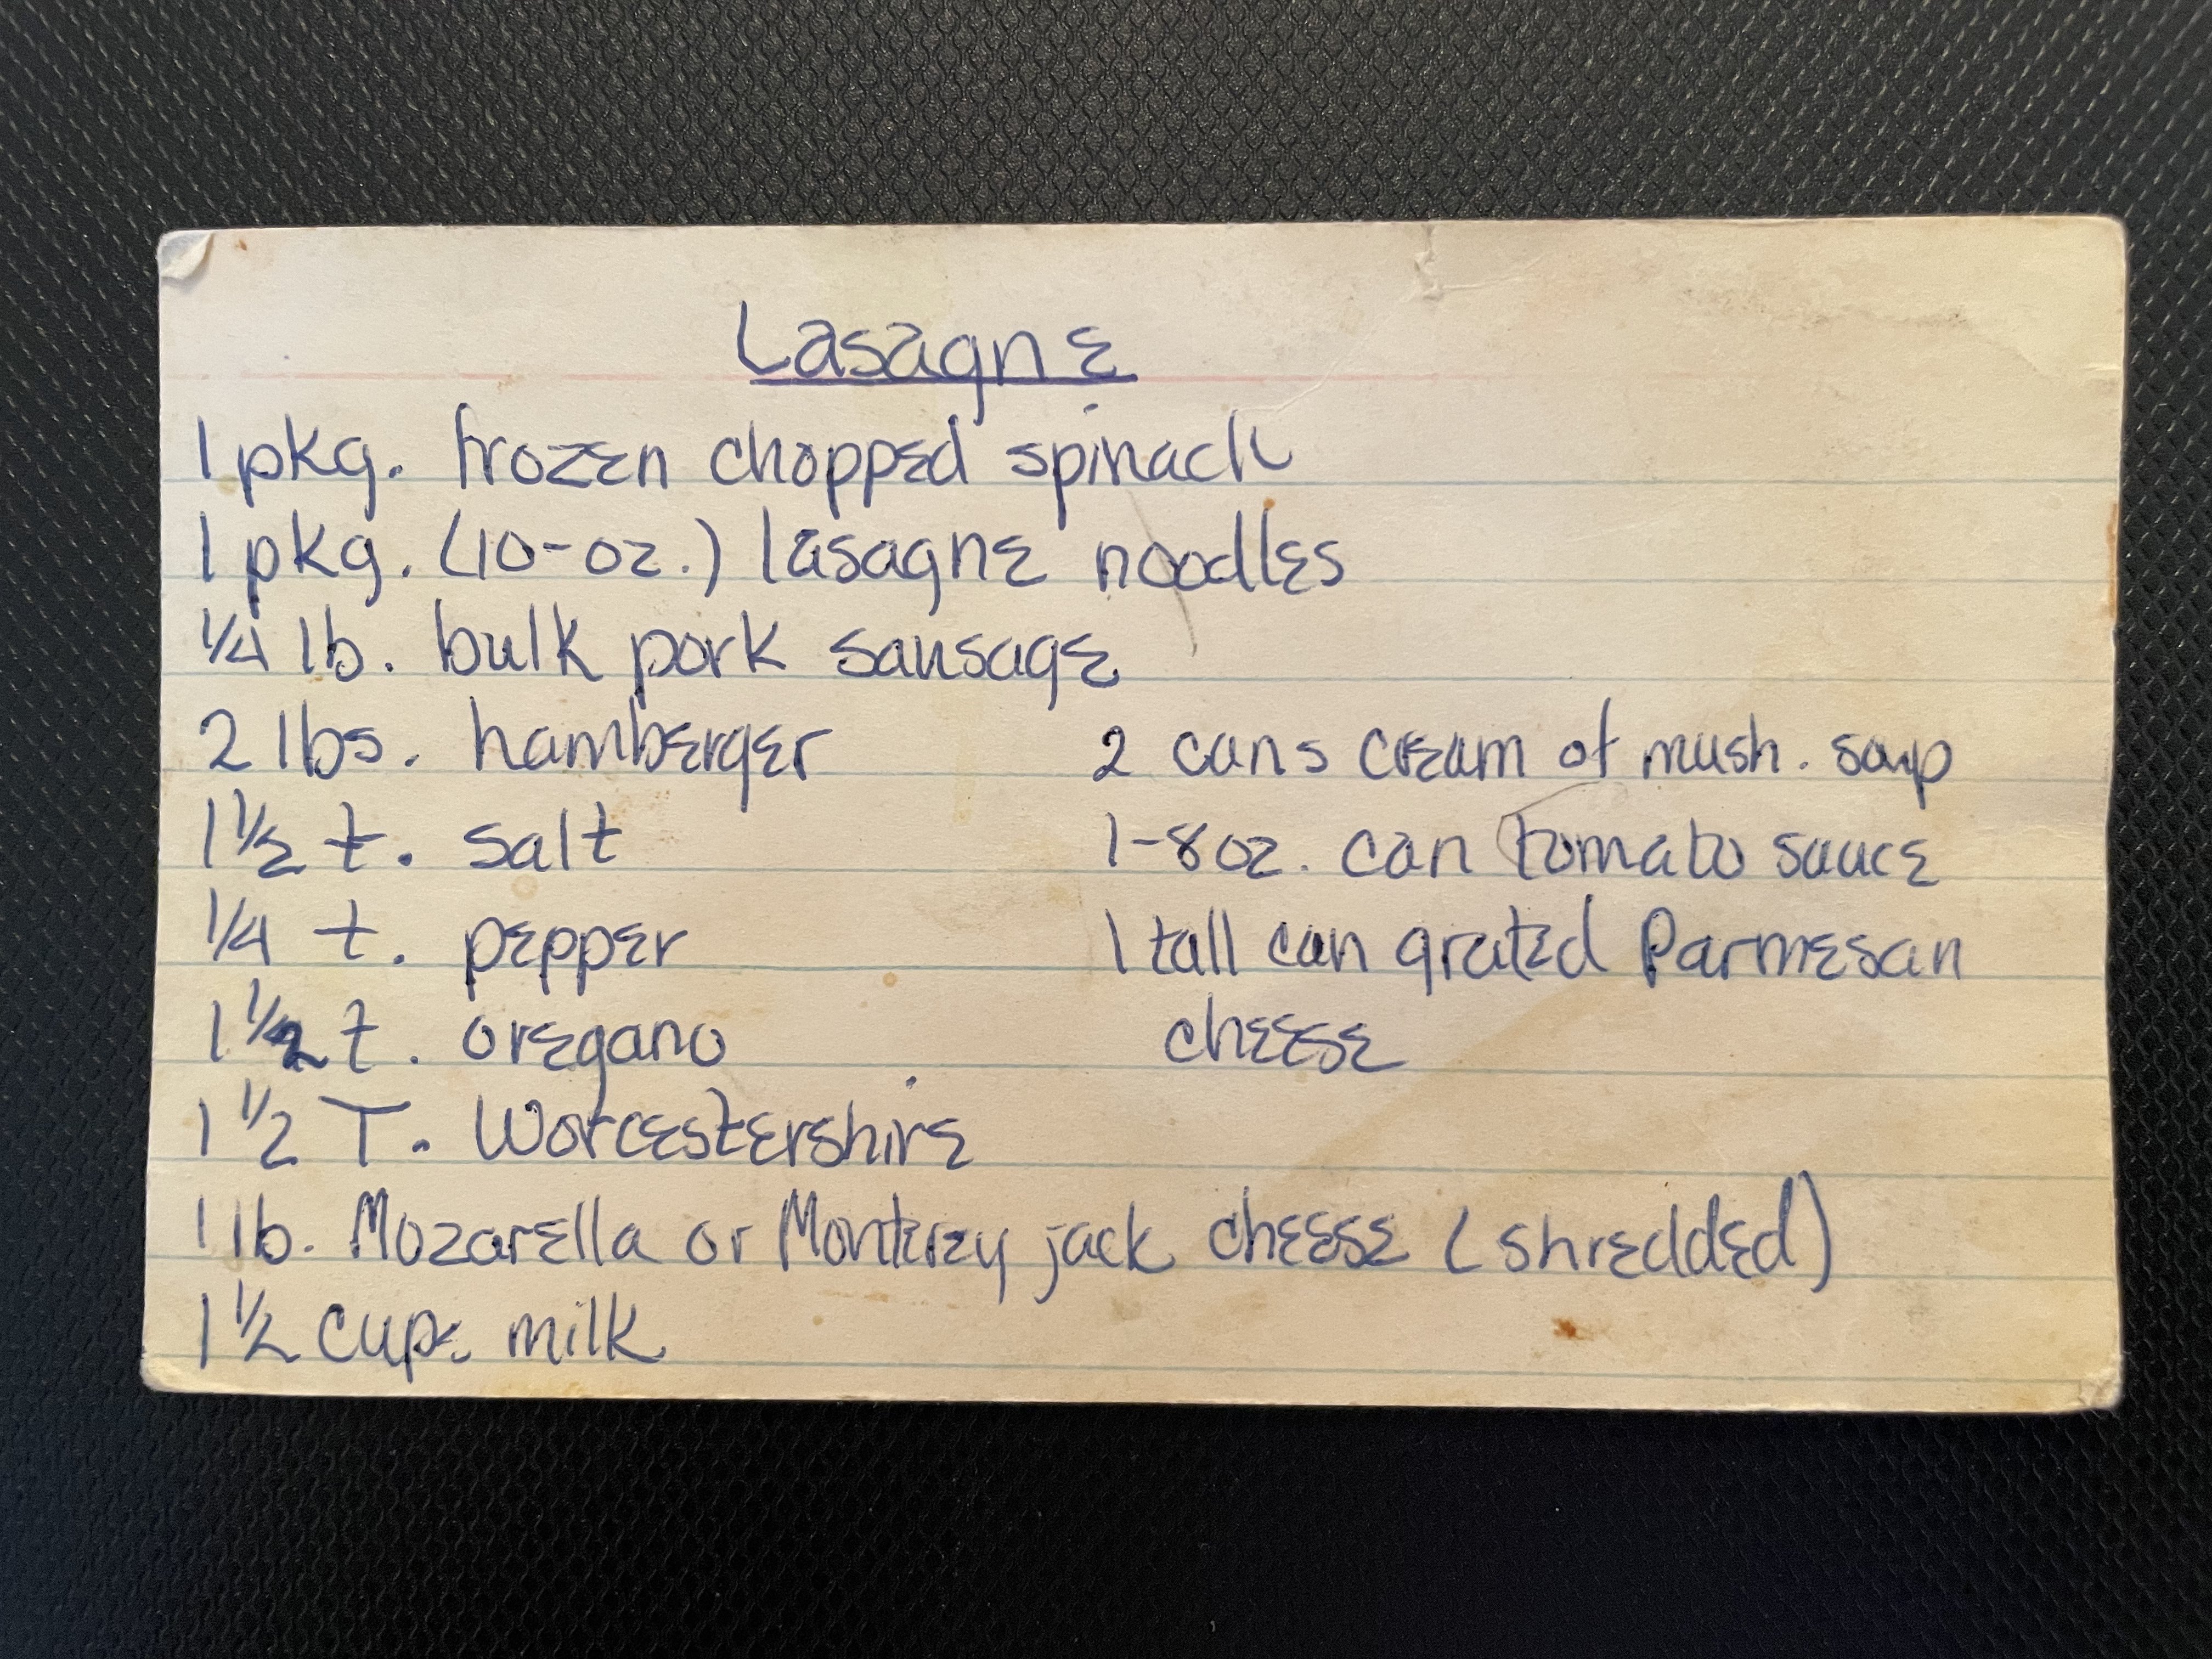 Lasagne
1 pkg. frozen chopped spinach
1 pkg. (10-oz.) lasagne noodles
1/4 lb. bulk pork sausage
2 lbs. hamberger
1 1/2 t. salt
1/4 t. pepper
1 1/2 t. oregano
1 1/2 T. Worcestershire
1 lb. Mozarella or Monterey jack cheese (shredded)
1 1/2 cups milk
2 cans cream of mush. soup
1-8oz. can tomato sauce
1 tall can grated Parmesan
cheese